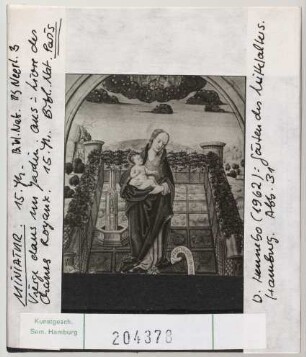 MINIATUR: 15. Jh. Bibl. Nat. Ms Néerl. 3
Vierge dans un jardin. Aus: Livre des
Chants Royaux. 15. Jh. Bibl. Nat. Paris
D. Hennebo (1962): Gärten des Mittelalters.
Hamburg. Abb. 31
Kunstgesch.
Sem. Hamburg
204378